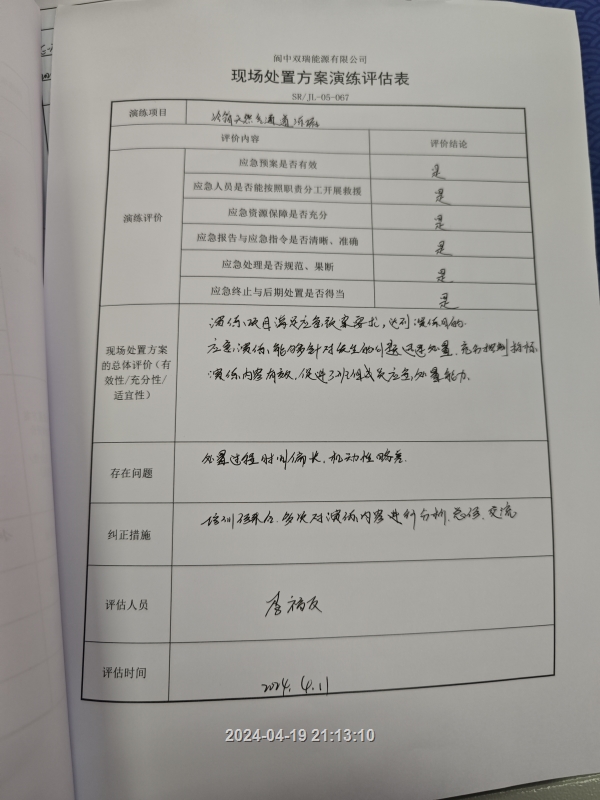 阆中双瑞能源有限公司
现场处置方案演练评估表
SR/JL-05-067
演练项目 冷箱天然气通道
评价内容 评价结论
演练评价
应急预案是否有效 是
应急人员是否能按照职责分工开展救援 是
应急资源保障是否充分 是
应急报告与应急指令是否清晰、准确 是
应急处理是否规范、果断 是
应急终止与后期处置是否得当 是
现场处置方案的总体评价(有效性/充分性/适宜性)
演练项目满足应急预案要求,达到演练目的
应急演练,能够针对发生的问题迅速处置,充分
演练内容有效,促进了班组成员应急处置能力.
存在问题 处置过程时间偏长,机动性略差.
纠正措施 培训结合,多次对演练内容进行分析、总结、交流
评估人员
评估时间 2024.4.11
2024-04-19 21:13:10